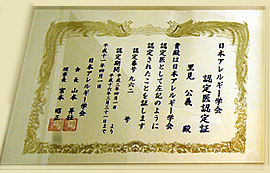 日本アレルギー学会
認定医認定証
里見 公義 殿
貴殿は日本アレルギー学会
認定医として左記のように
認定されたことを証します
認定番号 九六二 号
認定期間
平成十一年四月一日
日本アレルギー学会
会長 山本
理事長 宮本 昭正